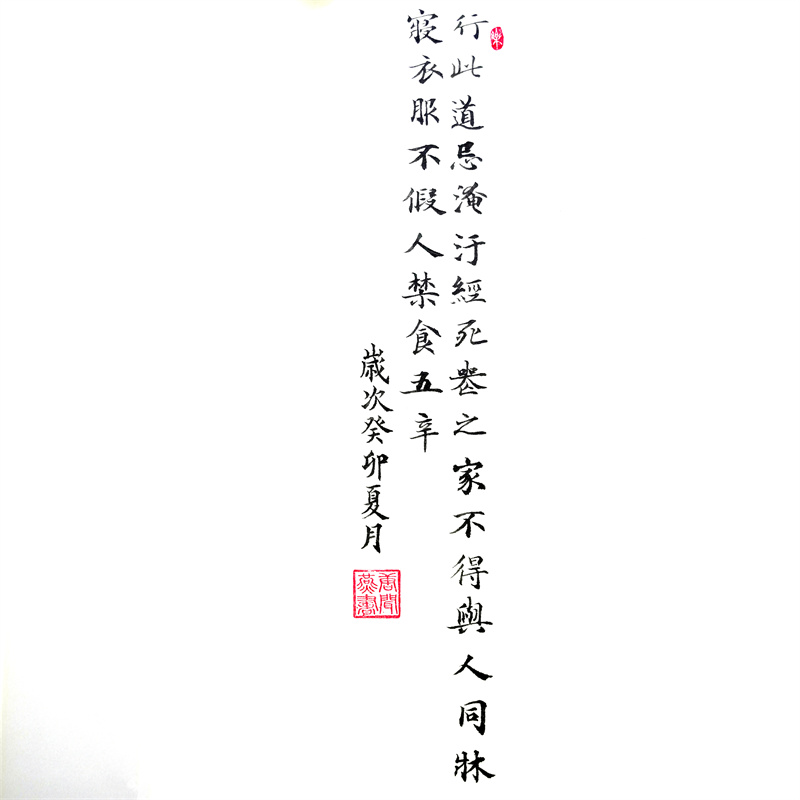 行此道忌淹汙經死喪之家不得與人同牀
寢衣服不假人禁食五辛
歲次癸卯夏月